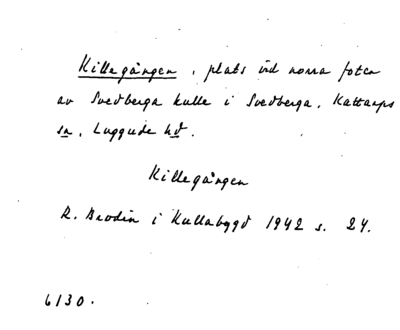 Killegången, plats vid norra foten
av Svedberga kulle i Svedberga, Kattarps
sn, Luggude hd.
Killegången
R. Brodin i Kullabygd 1942 s. 24.
6130.